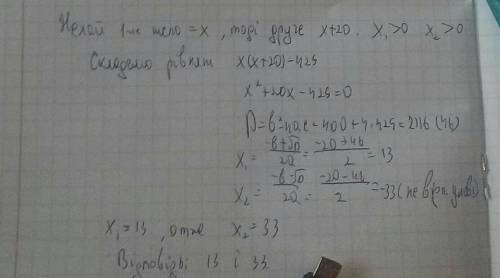 Нехай 1-ше число = x, тоді друге x+20. x₁>0 x₂>0
Складемо рівнян x(x+20)=429
x²+20x-429=0
D=b²-4ac=400+4·429=2116 (46)
x₁=(-b+√D)/2a=(-20+46)/2=13
x₂=(-b-√D)/2a=(-20-46)/2=-33 (не
x₁=13, отже x₂=33
Відповідь: 13 і 33.